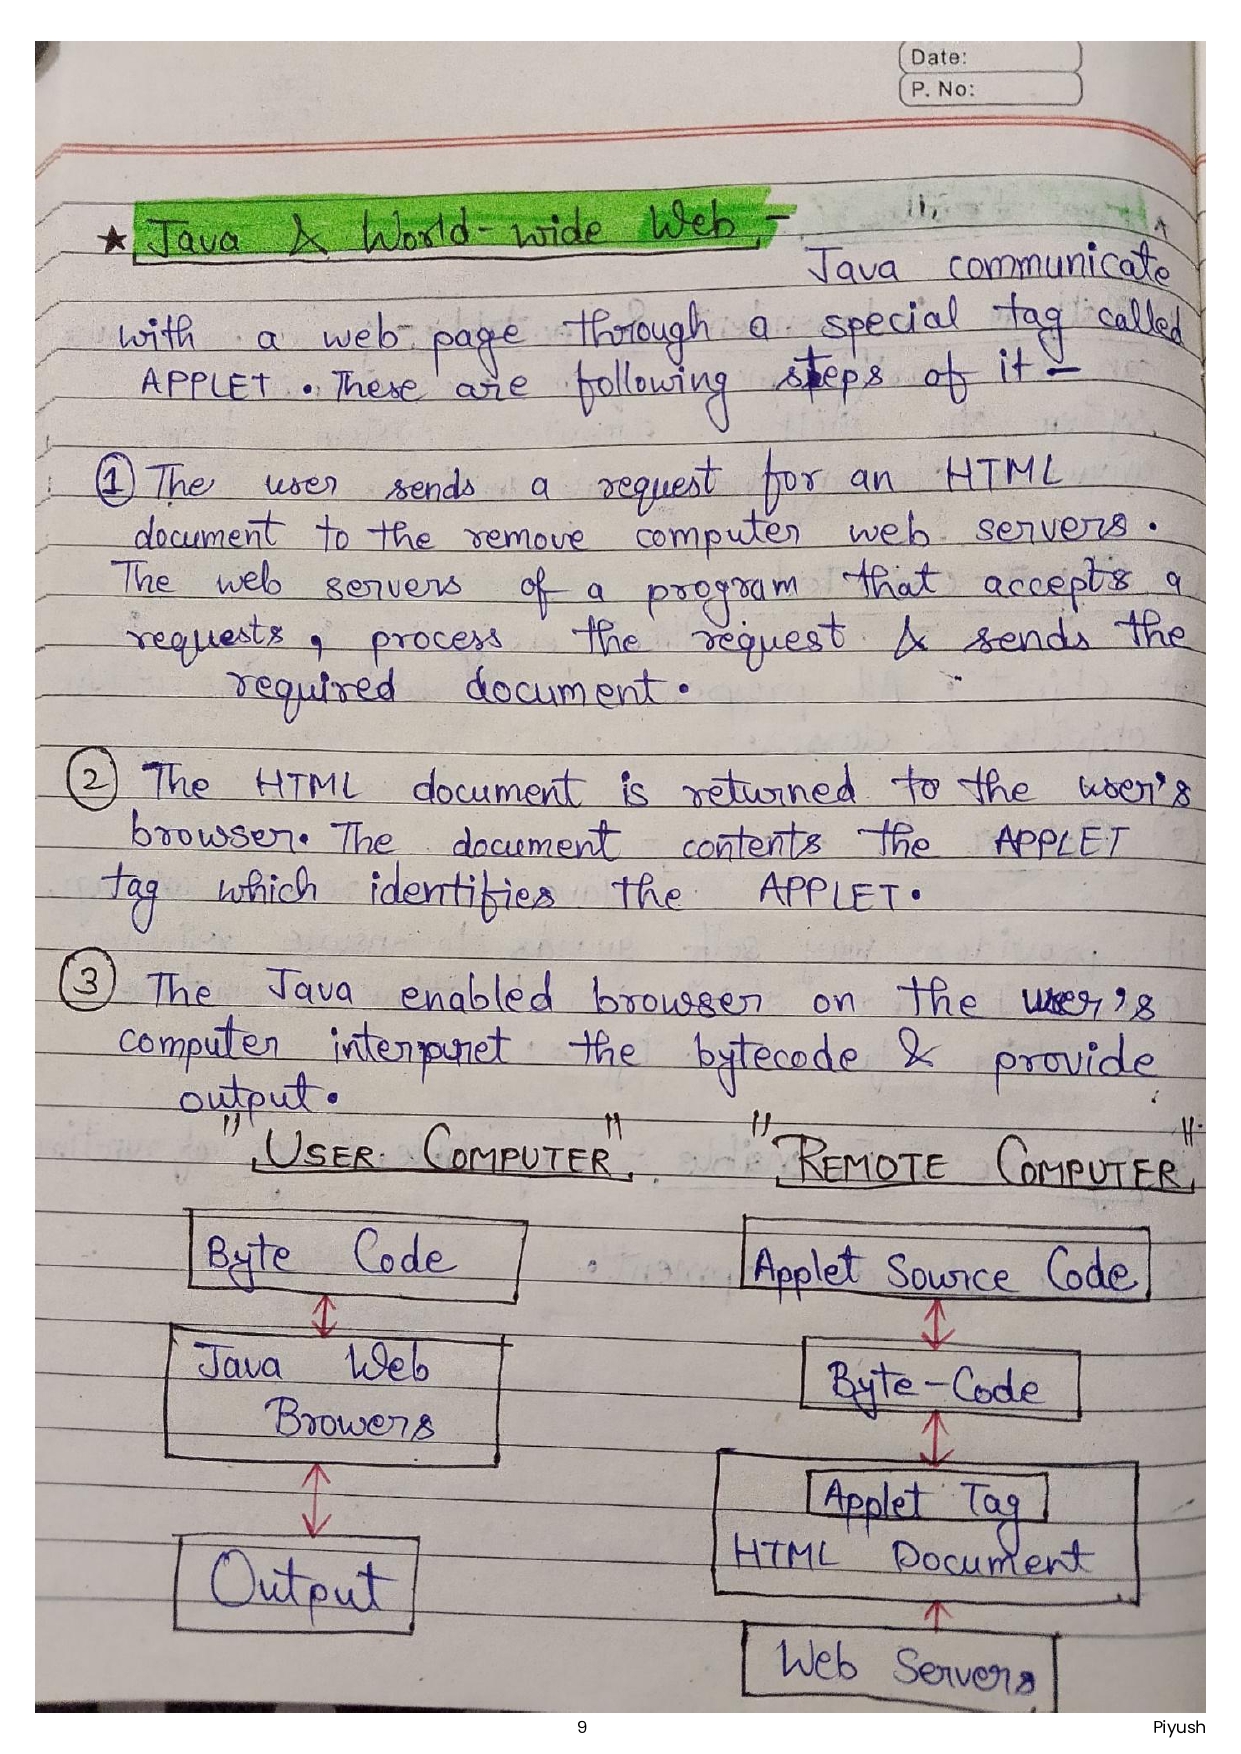 Date:
P. No:
★ Java & World-wide Web, -
Java communicate
with a web page through a special tag called
APPLET. These are following steps of it -
① The user sends a request for an HTML
document to the remove computer web servers.
The web servers of a program that accepts a
requests, process the request & sends the
required document.
② The HTML document is returned to the user's
browser. The document contents the APPLET
tag which identifies the APPLET.
③ The Java enabled browser on the user's
computer interpret the bytecode & provide
output.
"USER COMPUTER" "REMOTE COMPUTER"
Byte Code
Java Web
Browers
Output
Applet Source Code
Byte-Code
Applet Tag
HTML Document
Web Servers
9 Piyush